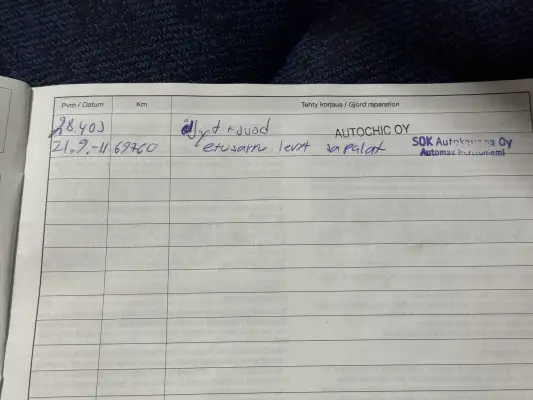 Pvm / Datum Km Tehty korjaus / Gjord reparation
28.403 öljyt + suod AUTOCHIC OY
21.9.-11 69760 etujarru levyt ja palat SOK Autokauppa Oy
Automaa